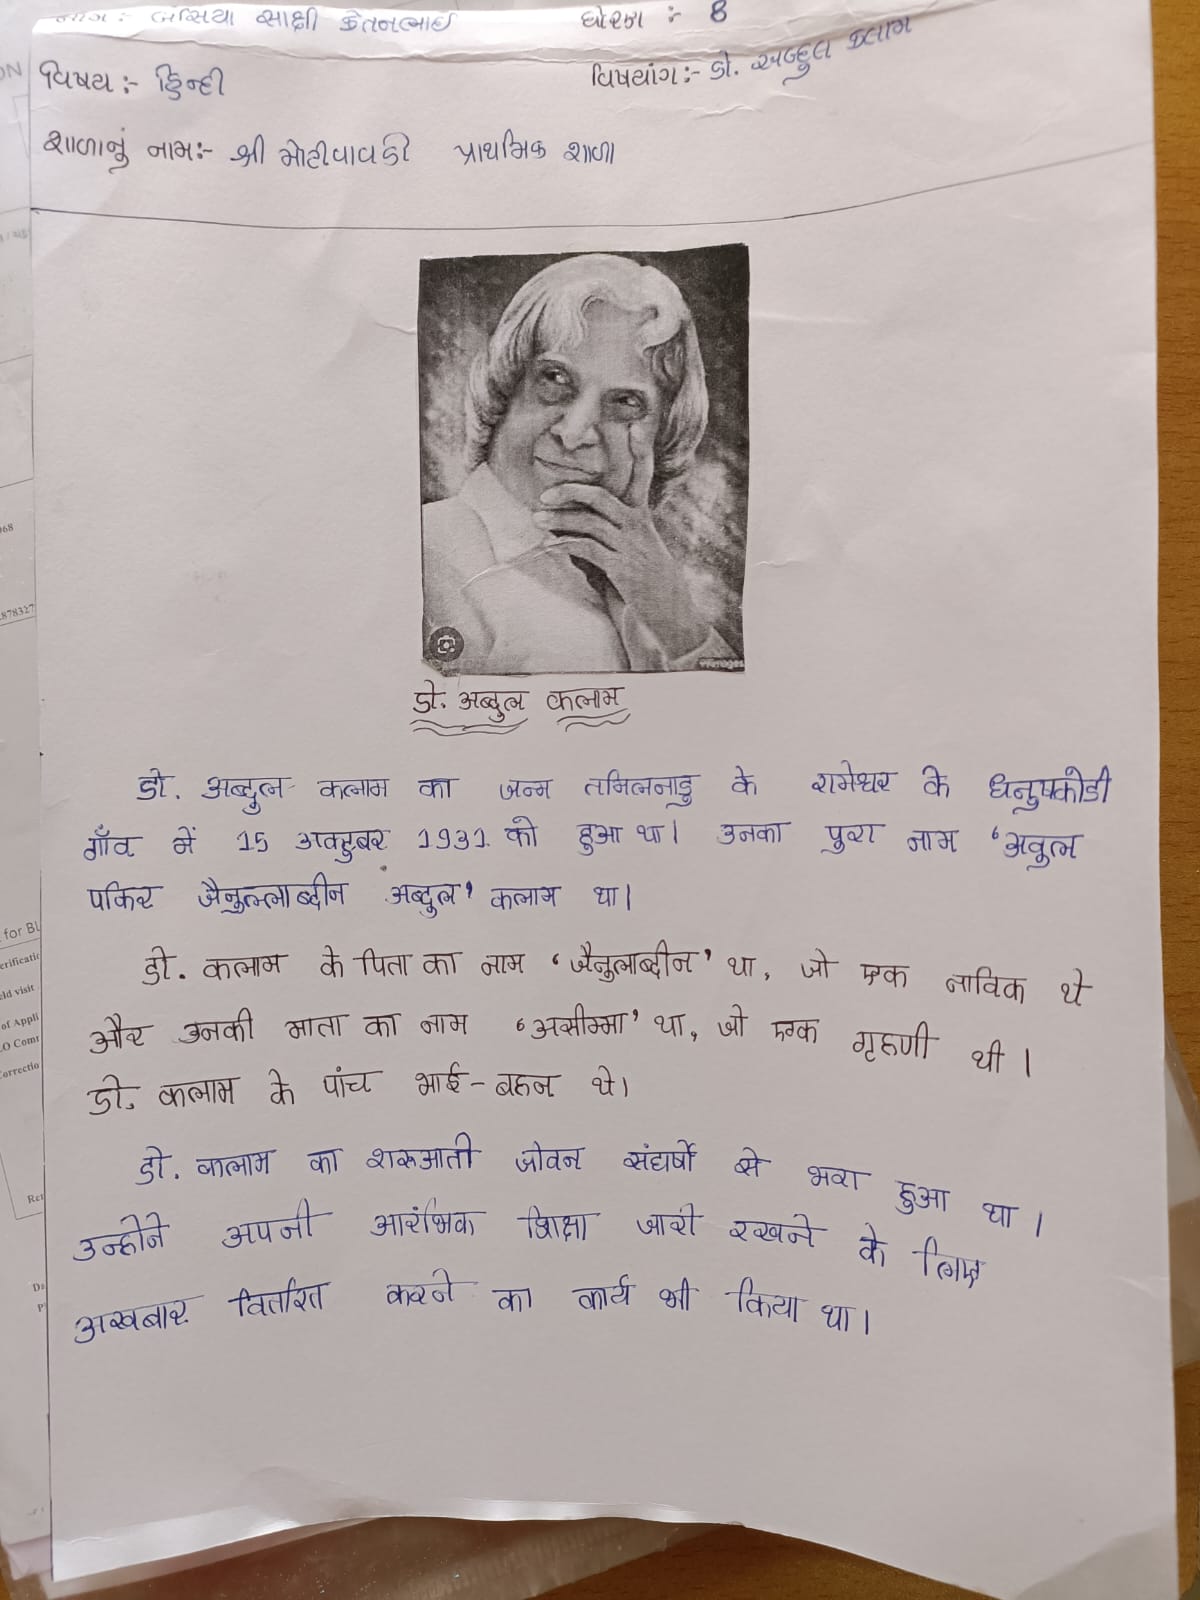 નામ:- બંસિયા સાક્ષી કેતનભાઈ ધોરણ :- 8
વિષય :- હિન્દી વિષયાંગ:- ડો. અબ્દુલ કલામ
શાળાનું નામ:- શ્રી મોટીવાવડી પ્રાથમિક શાળા
डो. अब्दुल कलाम
डो. अब्दुल कलाम का जन्म तमिलनाडु के रामेश्वर के धनुषकोडी
गाँव में 15 अक्टुबर 1931 को हुआ था। उनका पुरा नाम 'अवुल
पकिर जैनुल्लाब्दीन अब्दुल' कलाम था।
डो. कलाम के पिता का नाम 'जैनुलाब्दीन' था, जो एक नाविक थे
और उनकी माता का नाम 'असीम्मा' था, जो एक गृहणी थी।
डो. कलाम के पांच भाई-बहन थे।
डो. कलाम का शरूआती जीवन संघर्षों से भरा हुआ था।
उन्होने अपनी आरंभिक शिक्षा जारी रखने के लिए
अखबार वितरित करने का कार्य भी किया था।
for BL
eld visit
of Appli
O Comr
orrectio
068
878327